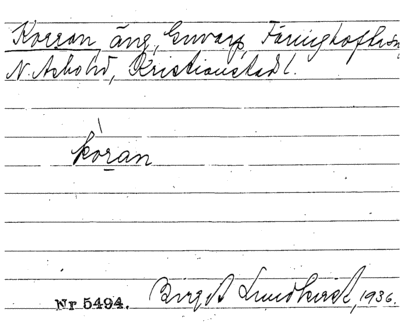 Korran, äng, Envarp, Färingtofta sn,
N. Åsbohd, Kristianstad l.
kòran
Nr 5494. Birgit Lundkvist, 1936.